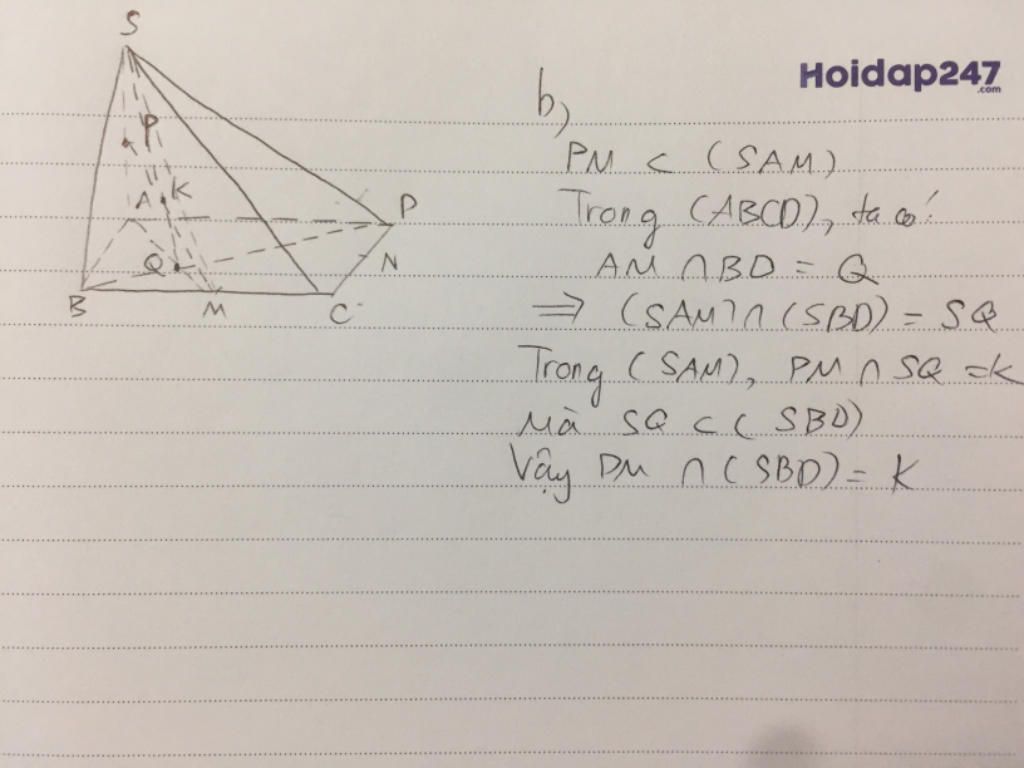 S
P
A K
D
Q
N
B
M
C
Hoidap247
.com
b)
PM ⊂ (SAM)
Trong (ABCD), ta có:
AM ∩ BD = Q
⇒ (SAM) ∩ (SBD) = SQ
Trong (SAM), PM ∩ SQ = K
Mà SQ ⊂ (SBD)
Vậy PM ∩ (SBD) = K